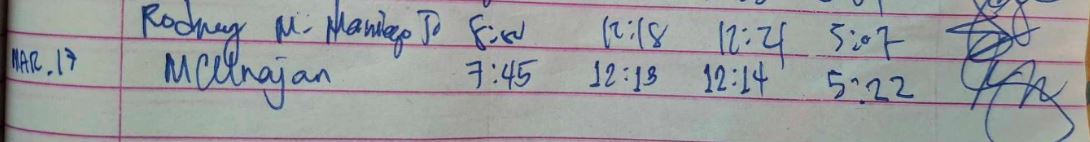 Rodney M. Manlapo Jr 8:01 12:18 12:21 5:07
MAR. 17 MCUnajan 7:45 12:13 12:14 5:22